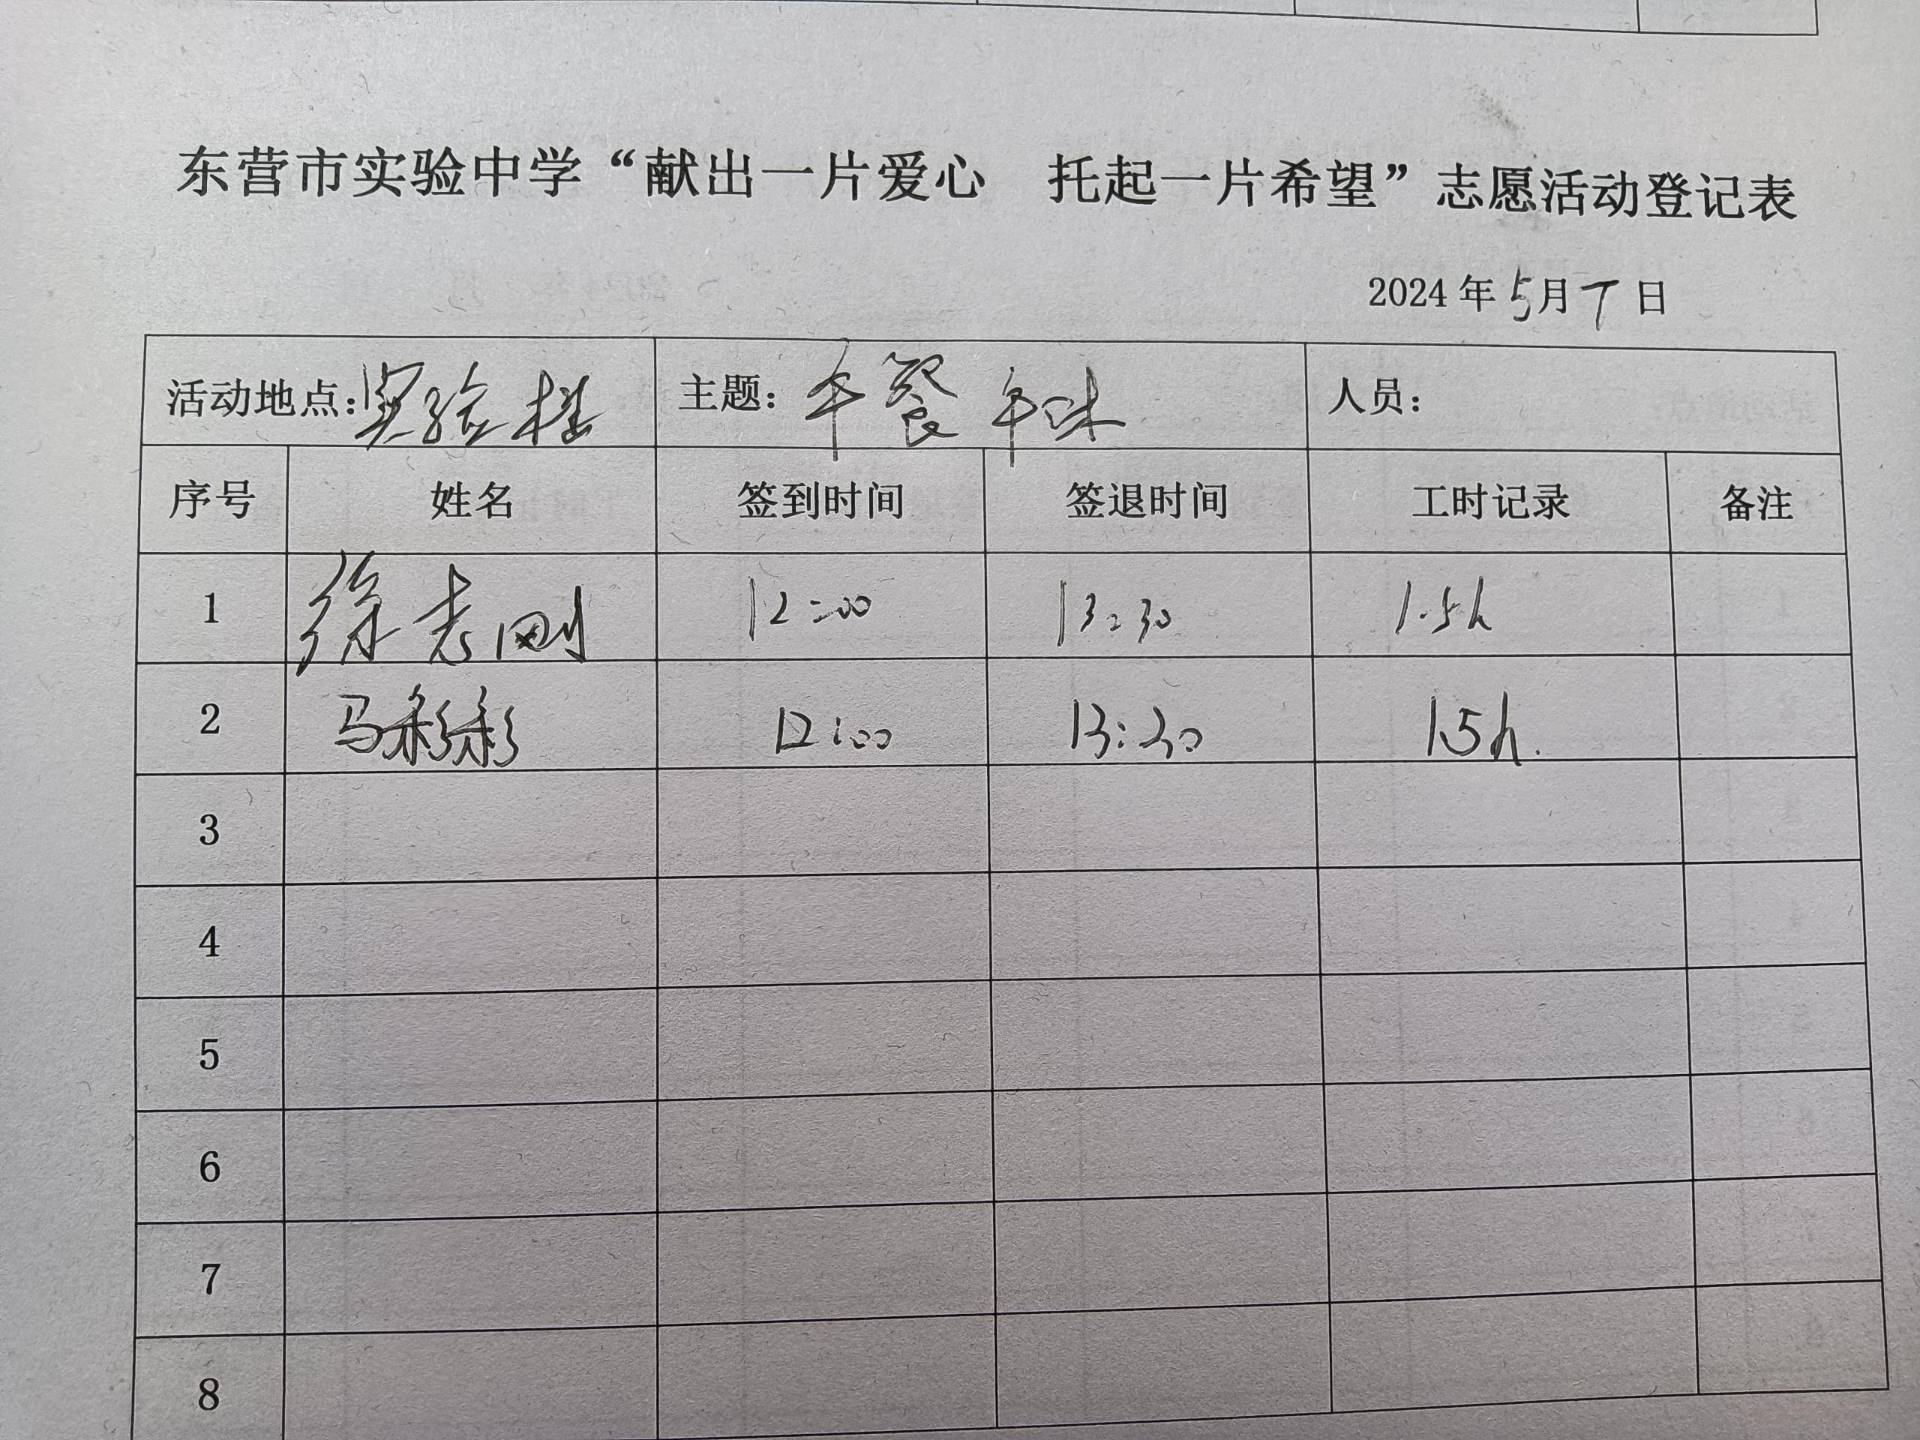 东营市实验中学“献出一片爱心 托起一片希望”志愿活动登记表
2024年5月7日
活动地点:实验楼 主题:午餐午休 人员:
序号 姓名 签到时间 签退时间 工时记录 备注
1 徐志刚 12:00 13:30 1.5h
2 马彩彩 12:00 13:30 1.5h.
3
4
5
6
7
8